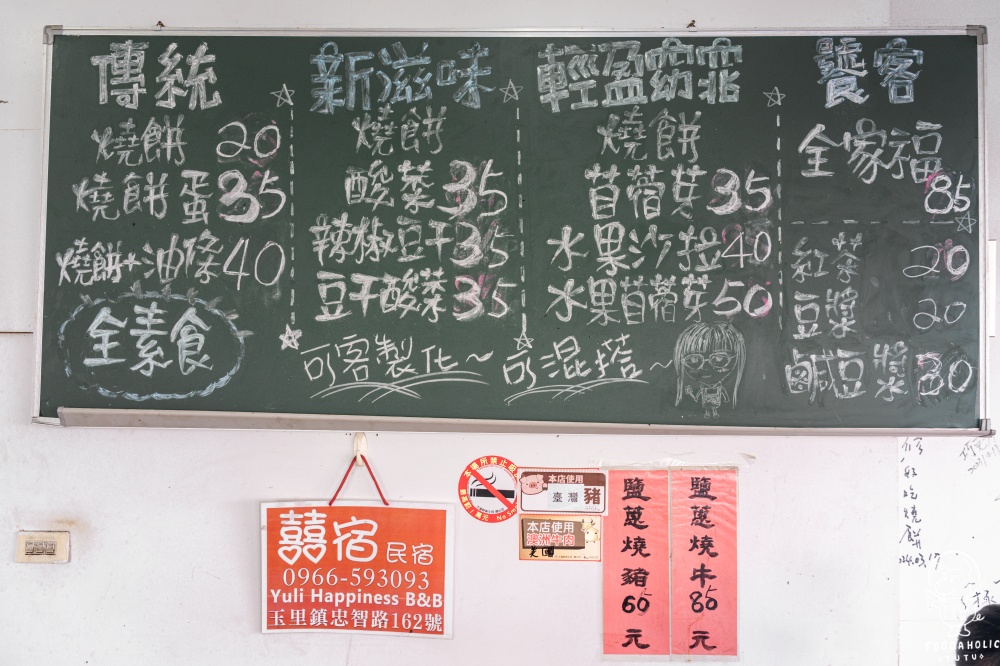 傳統
燒餅 20
燒餅蛋 35
燒餅+油條 40
全素食
新滋味
燒餅
酸菜 35
辣椒豆干 35
豆干酸菜 35
可客製化~
輕盈窈窕
燒餅
苜蓿芽 35
水果沙拉 40
水果苜蓿芽 50
可混搭~
饕客
全家福
85
紅茶 20
豆漿 20
鹹豆漿 30
囍宿民宿
0966-593093
Yuli Happiness B&B
玉里鎮忠智路162號
本場所禁止吸菸
本店使用
臺灣豬
本店使用
澳洲牛肉
美國
鹽蔥燒豬 60元
鹽蔥燒牛 85元
好吃燒餅